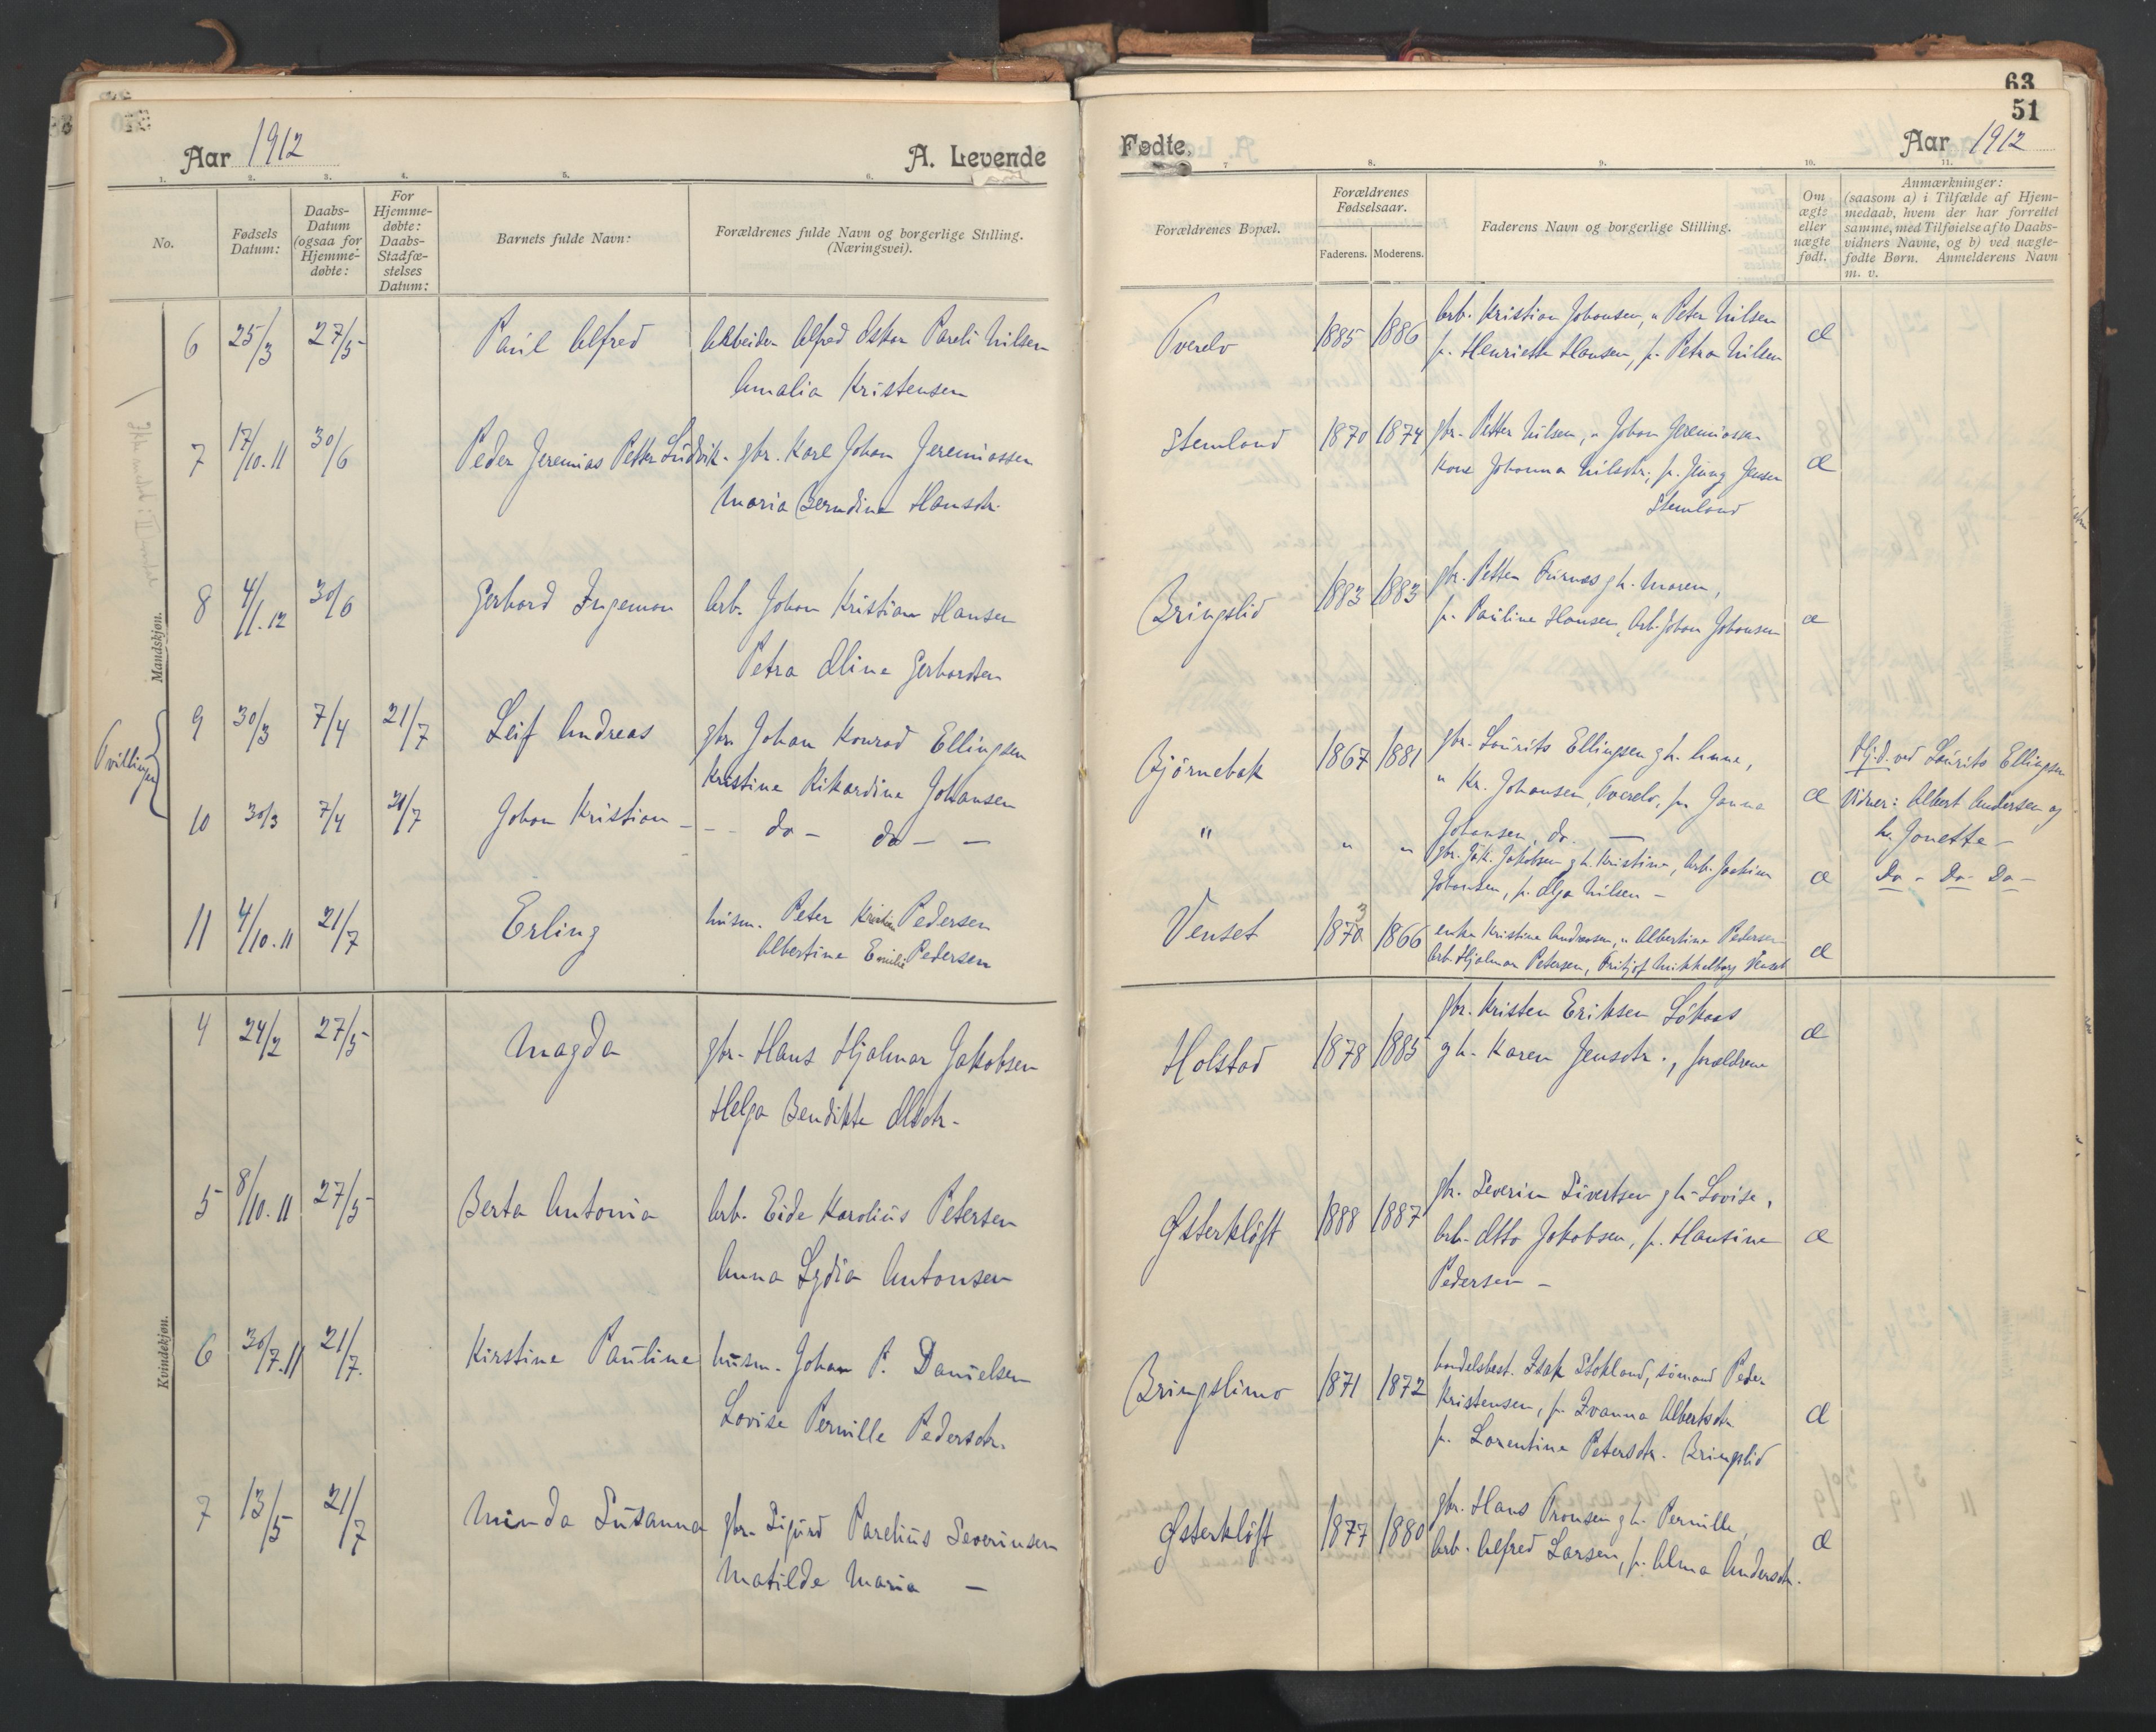 63
51
Aar 1912
A. Levende
Fødte.
Aar 1912
1. 2. 3. 4. 5. 6. 7. 8. 9. 10. 11.
No.
Fødsels Datum:
Daabs-Datum (ogsaa for Hjemme-døbte:
For Hjemme-døbte: Daabs-Stadfæ-stelses Datum:
Barnets fulde Navn:
Forældrenes fulde Navn og borgerlige Stilling. (Næringsvei).
Forældrenes Bopæl.
Forældrenes Fødselsaar.
Faderens. Moderens.
Faderens Navn og borgerlige Stilling.
Om ægte eller uægte født.
Anmærkninger:
(saasom a) i Tilfælde af Hjem-
medaab, hvem der har forrettet
samme, med Tilføielse af to Daabs-
vidners Navne, og b) ved uægte-
fødte Børn. Anmelderens Navn
m. v.
Mandskjøn.
6 25/3 27/5 Paul Alfred Arbeider Alfred Oskar Pareli Nilsen
Amalia Kristensen
Tverelv 1885 1886 Arb. Kristian Johansen, " Peter Nilsen
fr. Henriette Hansen, fr. Petra Nilsen
æ
7 17/10.11 30/6 Peder Jeremias Petter Ludvik gbr. Karl Johan Jeremiassen
Maria Berndine Hansdtr.
Stemland 1870 1874 gbr. Petter Nilsen, " Johan Jeremiassen
Kone Johanna Nilsdtr., fr. Jensen
Stemland
æ
8 4/1.12 30/6 Gerhard Ingeman Arb. Johan Kristian Hansen
Petra Oline Gerhardsen
Bringslid 1883 1883 gbr. Petter Furnes g h. Maren,
fr. Pauline Hansen, Arb. Johan Johansen
æ
Tvillinger
9 30/3 7/4 21/7 Leif Andreas gbr. Johan Konrad Ellingsen
Kristine Rikardine Johansen
Bjørnebak 1867 1881 gbr. Laurits Ellingsen g h. Anne,
" Kr. Johansen, Tverelv, fr. Janna
Johansen, do. —
æ
Hj.d. ved Laurits Ellingsen
Vidner: Albert Andersen og
h. Jonette –
10 30/3 7/4 21/7 Johan Kristian - - - do - do - -
" " " gbr. Jak. Jakobsen g h. Kristine, Arb. Joakim
Johansen, fr. Olga Nilsen –
æ
Do - Do - Do -
11 4/10.11 21/7 Erling husm. Peter Kristian Pedersen
Albertine Emilie Pedersen
Venset 1870 3 1866 enke Kristine Andreasen, " Albertine Pedersen
Arb. Hjalmar Petersen, Fritjof Mikkelborg Venset
æ
Kvindekjøn.
4 24/2 27/5 Magda gbr. Hans Hjalmar Jakobsen
Helga Bendikte Olsdtr.
Holstad 1878 1885 gbr. Kristen Eriksen Løkaas
g h. Karen Jensdtr., forældrene
æ
5 8/10.11 27/5 Berta Antonia Arb. Eide Karolius Petersen
Anna Lydia Antonsen
Østerkløft 1888 1887 gbr. Severin Sivertsen g h. Lovise,
Arb. Otto Jakobsen, fr. Hansine
Pedersen –
æ
6 30/7.11 21/7. Kirstine Pauline husm. Johan P. Danielsen
Lovise Pernille Pedersdtr.
Bringslimo 1871 1872 handelsbest. Isak Stokland, sømand Peder
Kristensen, fr. Ivanna Albertsdtr.
fr. Lorentine Petersdtr. Bringslid
æ
7 13/5 21/7 Minda Susanna gbr. Sigurd Parelius Severinsen
Matilde Maria –
Østerkløft 1877 1880 gbr. Hans Tronsen g h. Pernille,
Arb. Alfred Larsen, fr. Alma Andersdtr.
æ